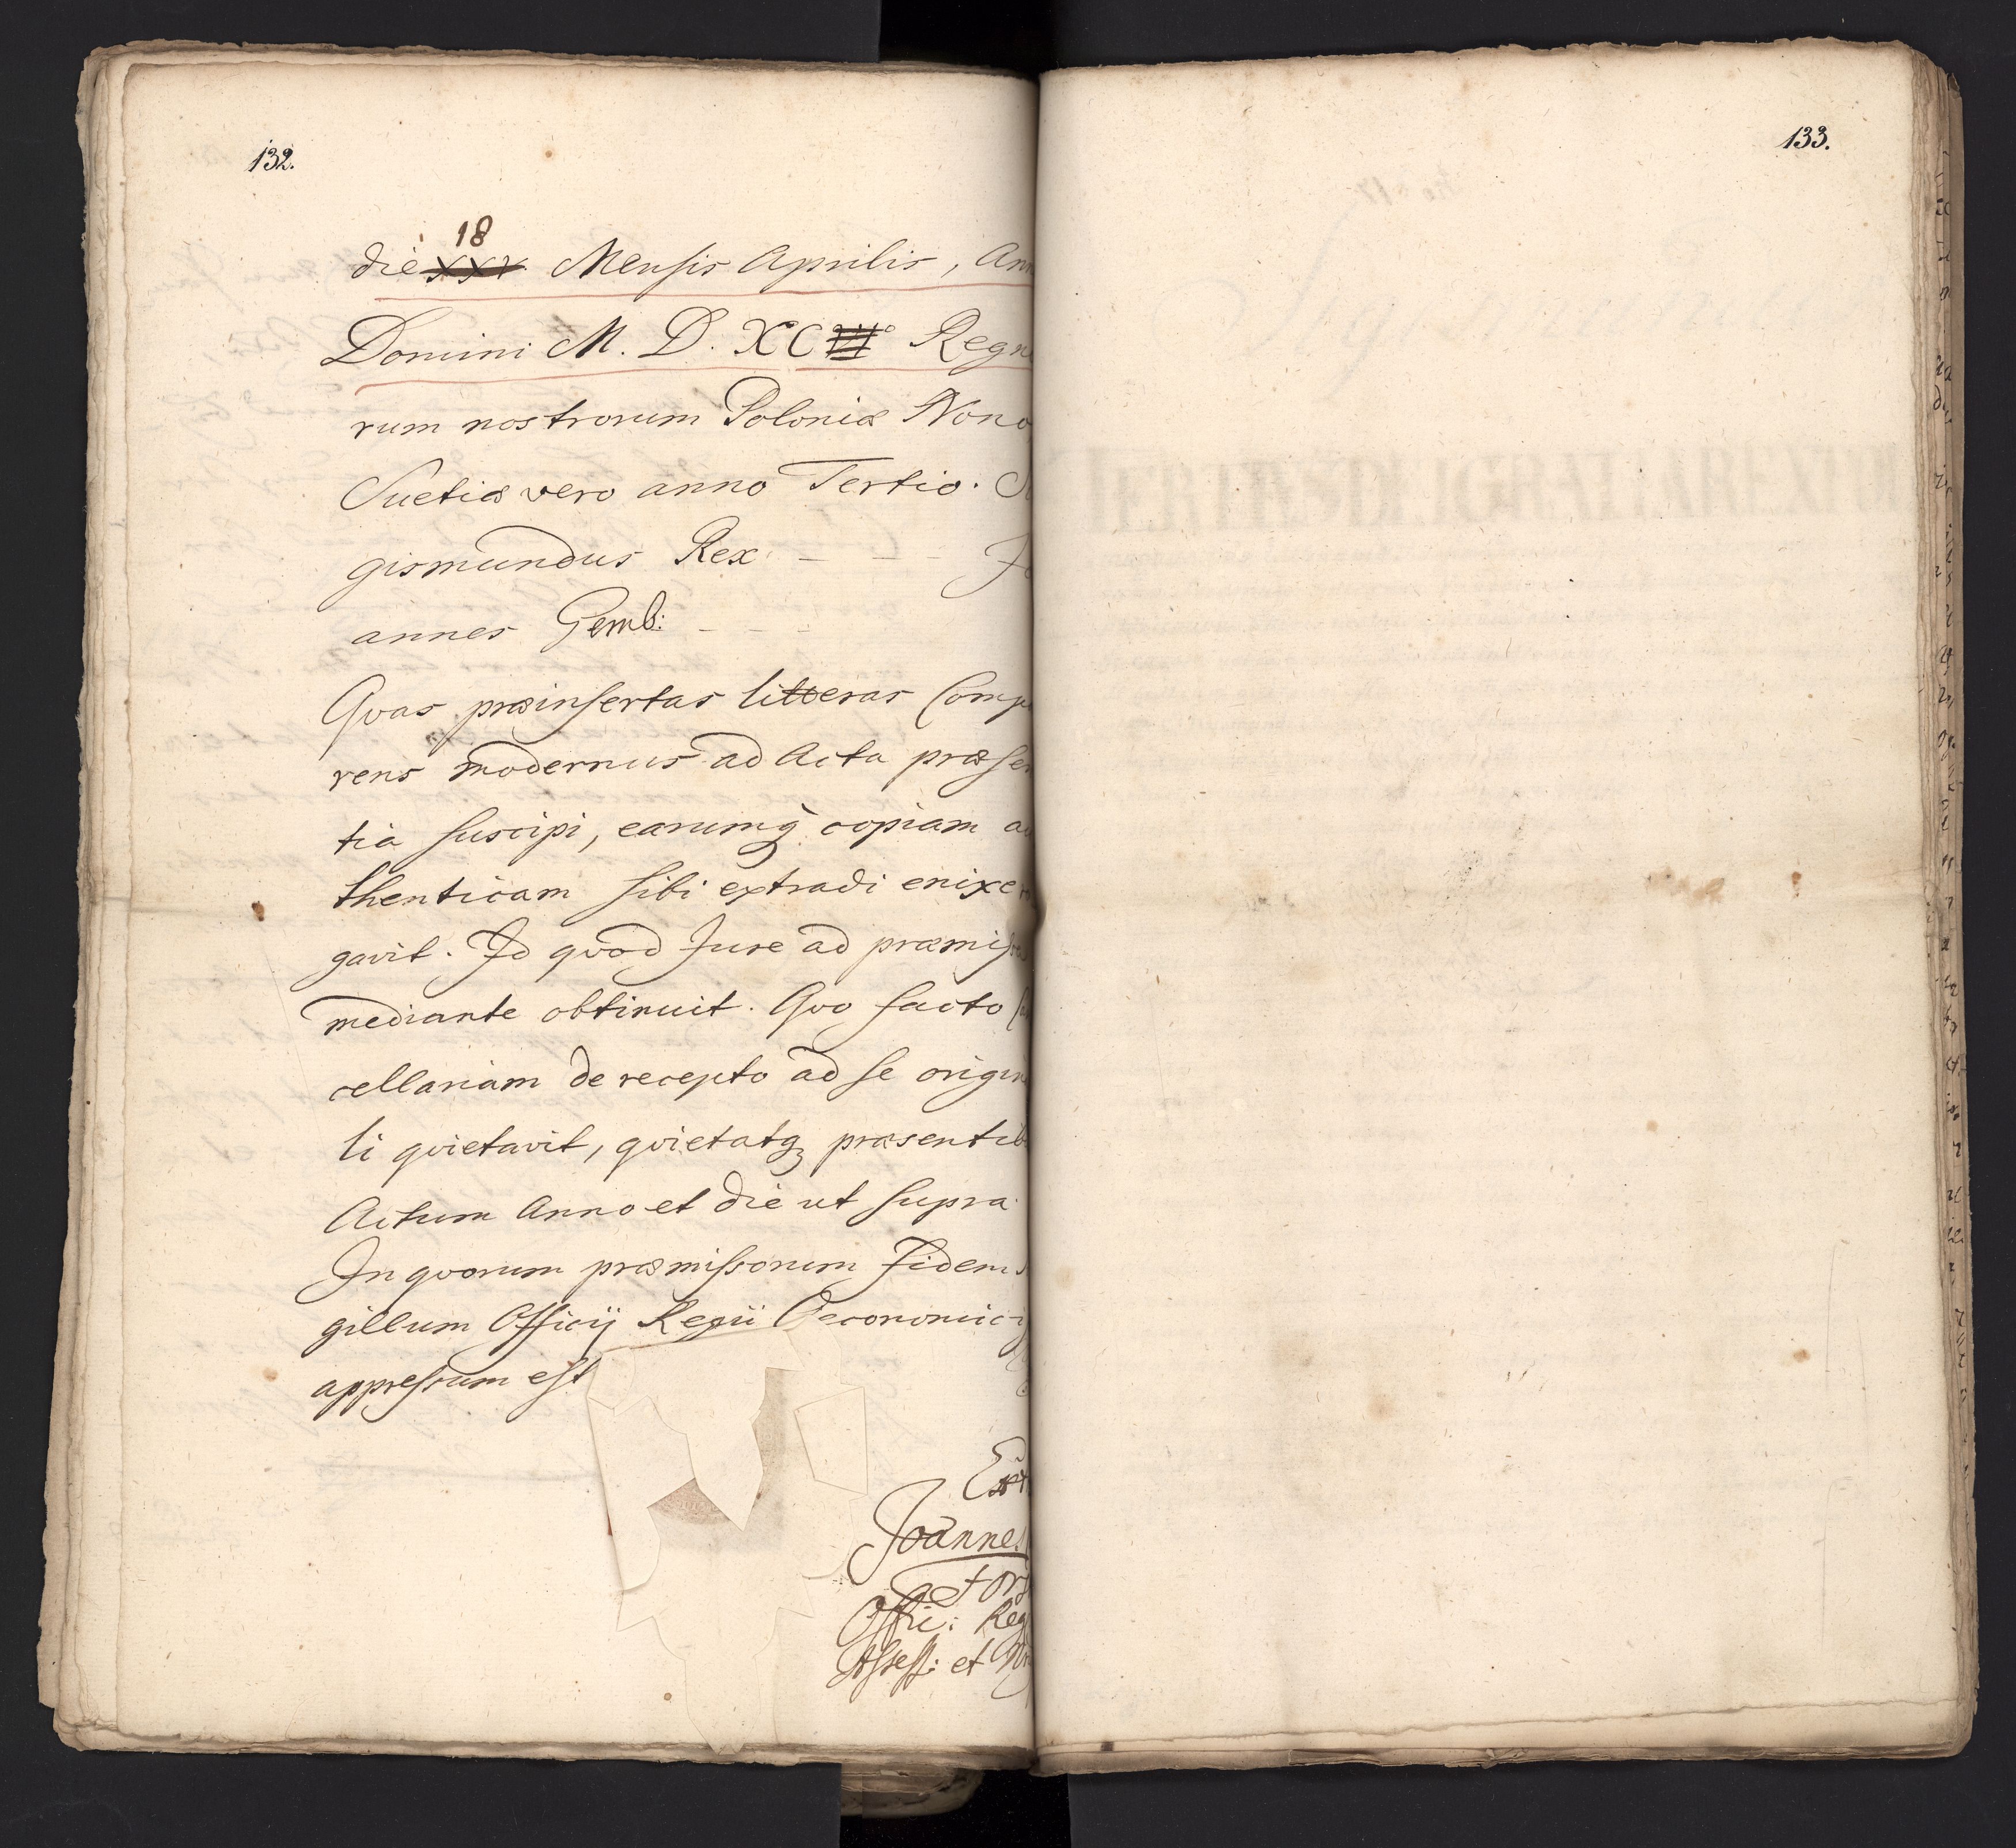 132.
18
die xxx Mensis Aprilis, An
Domini M. D. XCVII° Regno
rum nostrorum Poloniæ Nono
Suetiæ vero anno Tertio. Si
gismundus Rex. – – – Jo
annes Gemb: – – –
Qvas præinsertas litteras Comp
rens modernus ad Acta præsen
tia suscipi, earumq̃ copiam au
thenticam sibi extradi enixe ro
gavit. Id qvod Jure ad præmissa
mediante obtinuit. Qvo facto Can
cellariam de recepto ad se origina
li qvietavit, qvietatq; præsentib
Actum Anno et die ut supra.
In qvorum præmissorum Fidem Si
gillum Officij Regii Oeconomici
appressum est
Ext
Joannes
Offic: Reg
Assess: et No
133.